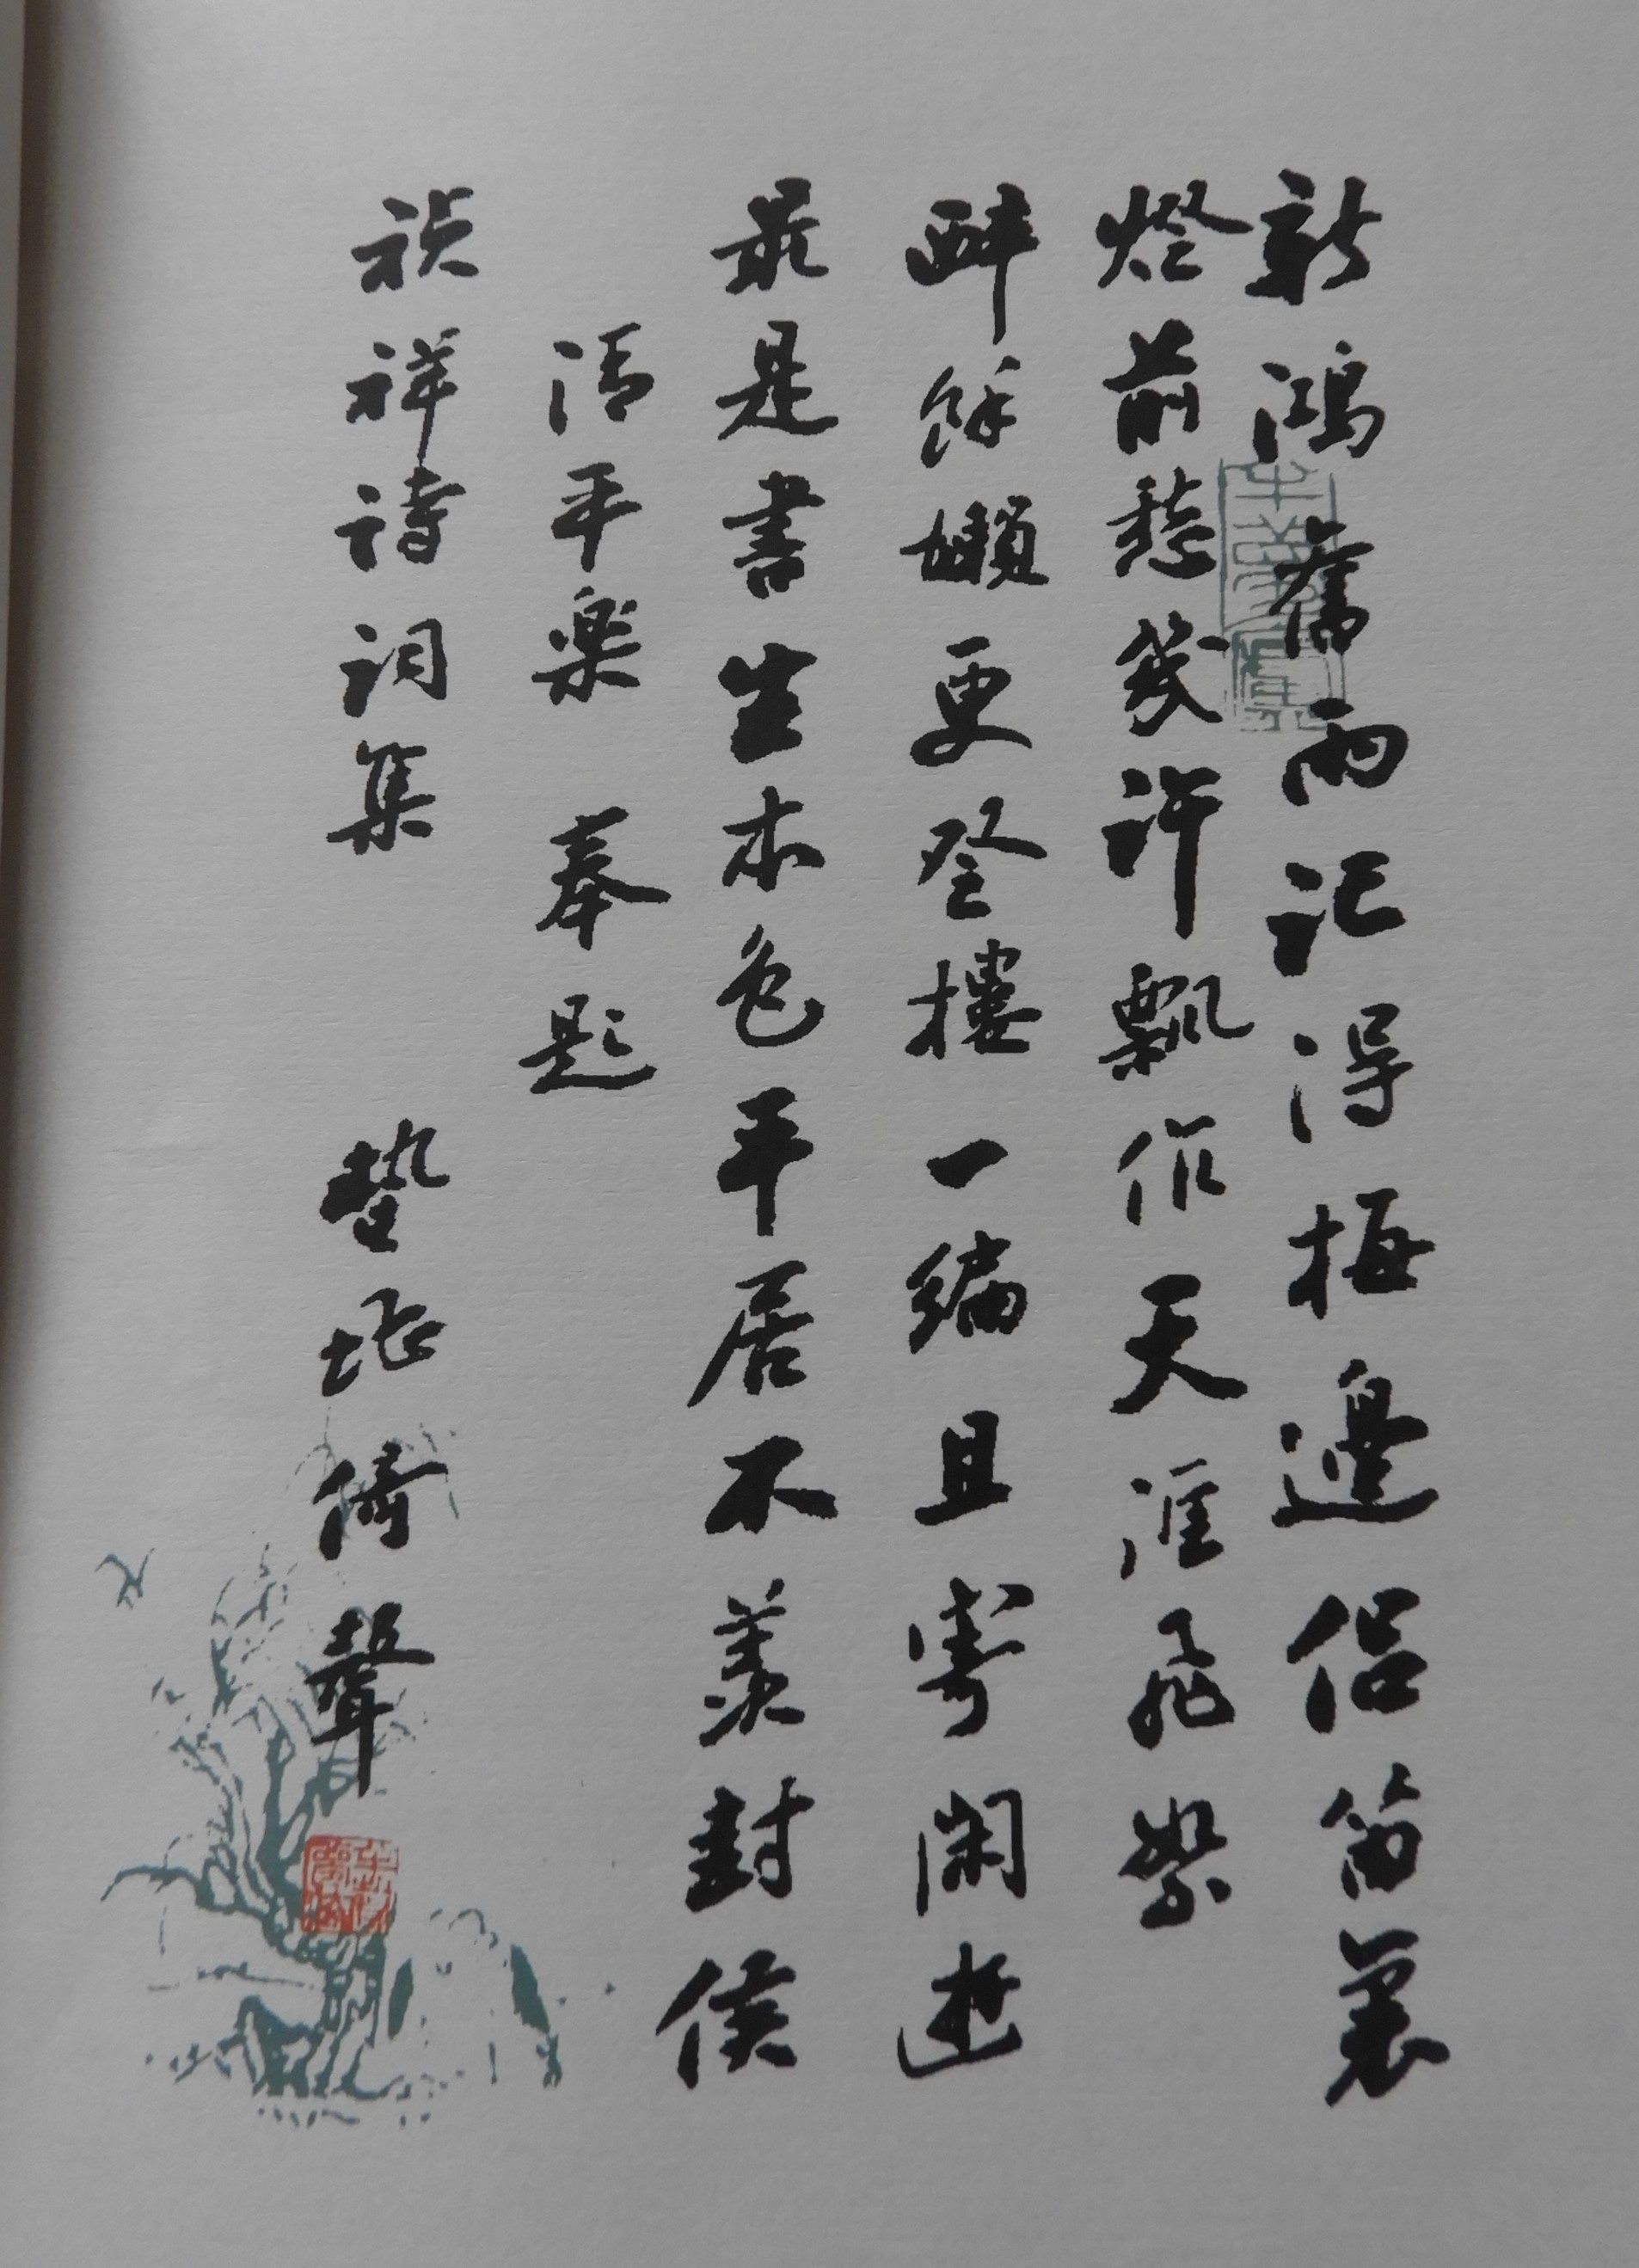 新鴻舊雨記得梅邊侶笛裏
燈前愁幾許飄作天涯飛絮
醉餘嬾更登樓一編且寄閑遊
最是書生本色平居不羨封侯
清平樂 奉題
祯祥诗词集
堪倚聲